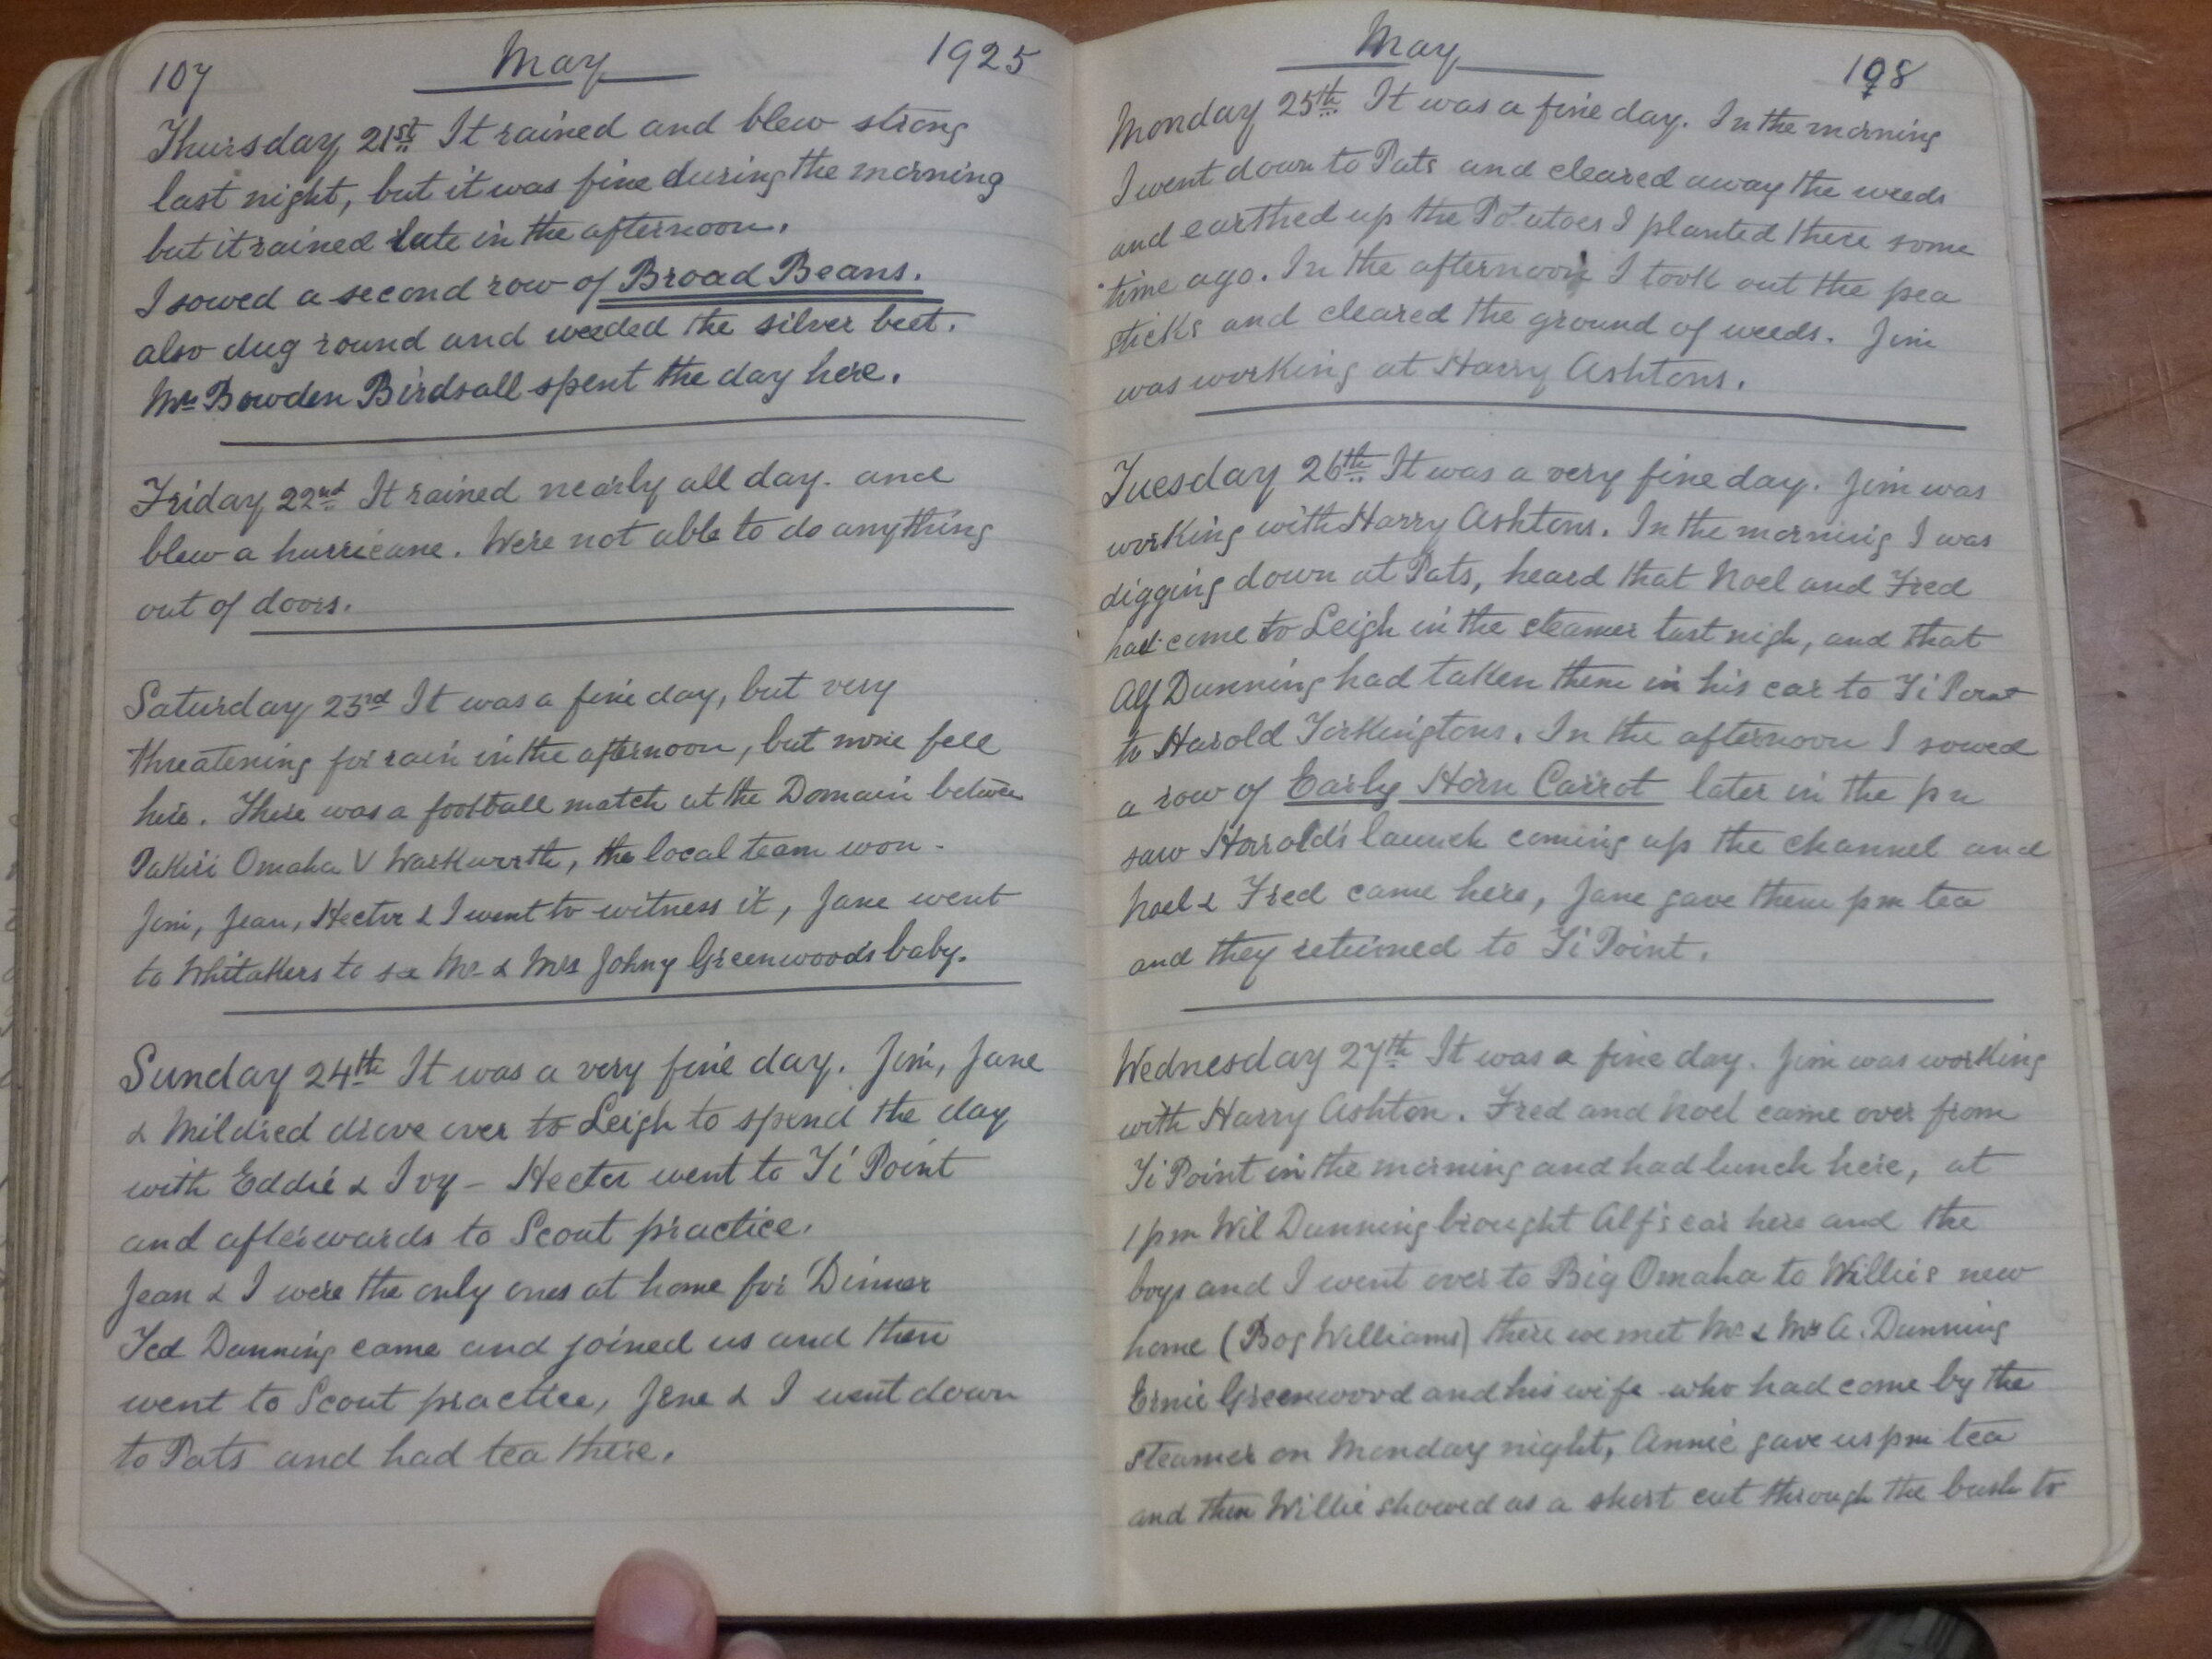 107 May 1925
Thursday 21st It rained and blew strong
last night, but it was fine during the morning
but it rained late in the afternoon.
I sowed a second row of Broad Beans.
also dug round and weeded the silver beet.
Mrs Bowden Birdsall spent the day here.
Friday 22nd It rained nearly all day. and
blew a hurricane. Were not able to do anything
out of doors.
Saturday 23rd It was a fine day, but very
threatening for rain in the afternoon, but none fell
here. There was a football match at the Domain between
Pakiri Omaha V Warkworth, the local team won.
Jim, Jean, Hector & I went to witness it, Jane went
to Whitakers to see Mr & Mrs Johny Greenwoods baby.
Sunday 24th It was a very fine day. Jim, Jane
& Mildred drove over to Leigh to spend the day
with Eddie & Ivy - Hector went to Ti Point
and afterwards to Scout practice.
Jean & I were the only ones at home for Dinner
Ted Dunning came and joined us and then
went to Scout practice, Jene & I went down
to Pats and had tea there.
May 108
Monday 25th It was a fine day. In the morning
I went down to Pats and cleared away the weeds
and earthed up the Potatoes I planted there some
time ago. In the afternoon I took out the pea
sticks and cleared the ground of weeds. Jim
was working at Harry Ashtons.
Tuesday 26th It was a very fine day. Jim was
working with Harry Ashtons. In the morning I was
digging down at Pats, heard that Noel and Fred
had come to Leigh in the steamer last nigh, and that
Alf Dunning had taken them in his car to Ti Point
to Harold Torkingtons. In the afternoon I sowed
a row of Early Horn Carrot later in the pm
saw Harold's launch coming up the channel and
Noel & Fred came here, Jane gave them pm tea
and they returned to Ti Point.
Wednesday 27th It was a fine day. Jim was working
with Harry Ashton. Fred and Noel came over from
Ti Point in the morning and had lunch here, at
1 pm Wil Dunning brought Alf's car here and the
boys and I went over to Big Omaha to Willies new
home (Bog Williams) there we met Mr & Mrs A. Dunning
Ernie Greenwood and his wife who had come by the
steamer on Monday night, Annie gave us pm tea
and then Willie showed us a short cut through the bush to